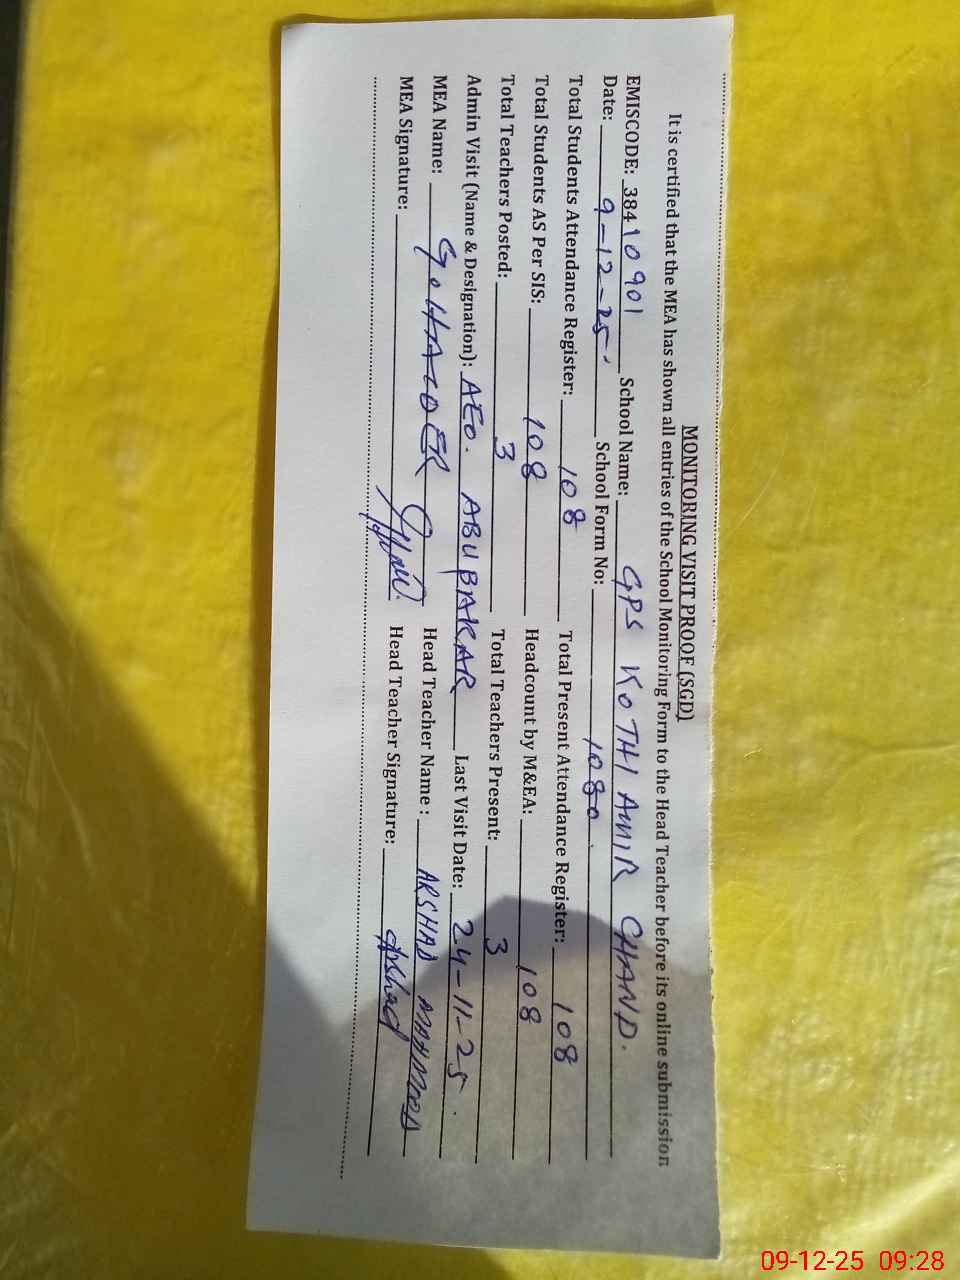 MONITORING VISIT PROOF (SGD)
It is certified that the MEA has shown all entries of the School Monitoring Form to the Head Teacher before its online submission
EMISCODE: 38410901 School Name: GPS KOTHI AMIR CHAND.
Date: 9-12-25 School Form No: 1080
Total Students Attendance Register: 108 Total Present Attendance Register: 108
Total Students AS Per SIS: 108 Headcount by M&EA: 108
Total Teachers Posted: 3 Total Teachers Present: 3
Admin Visit (Name & Designation): AEO. ABUBAKAR Last Visit Date: 24-11-25
MEA Name: Head Teacher Name : ARSHAD MAHMOOD
MEA Signature: Head Teacher Signature: Arshad
09-12-25 09:28